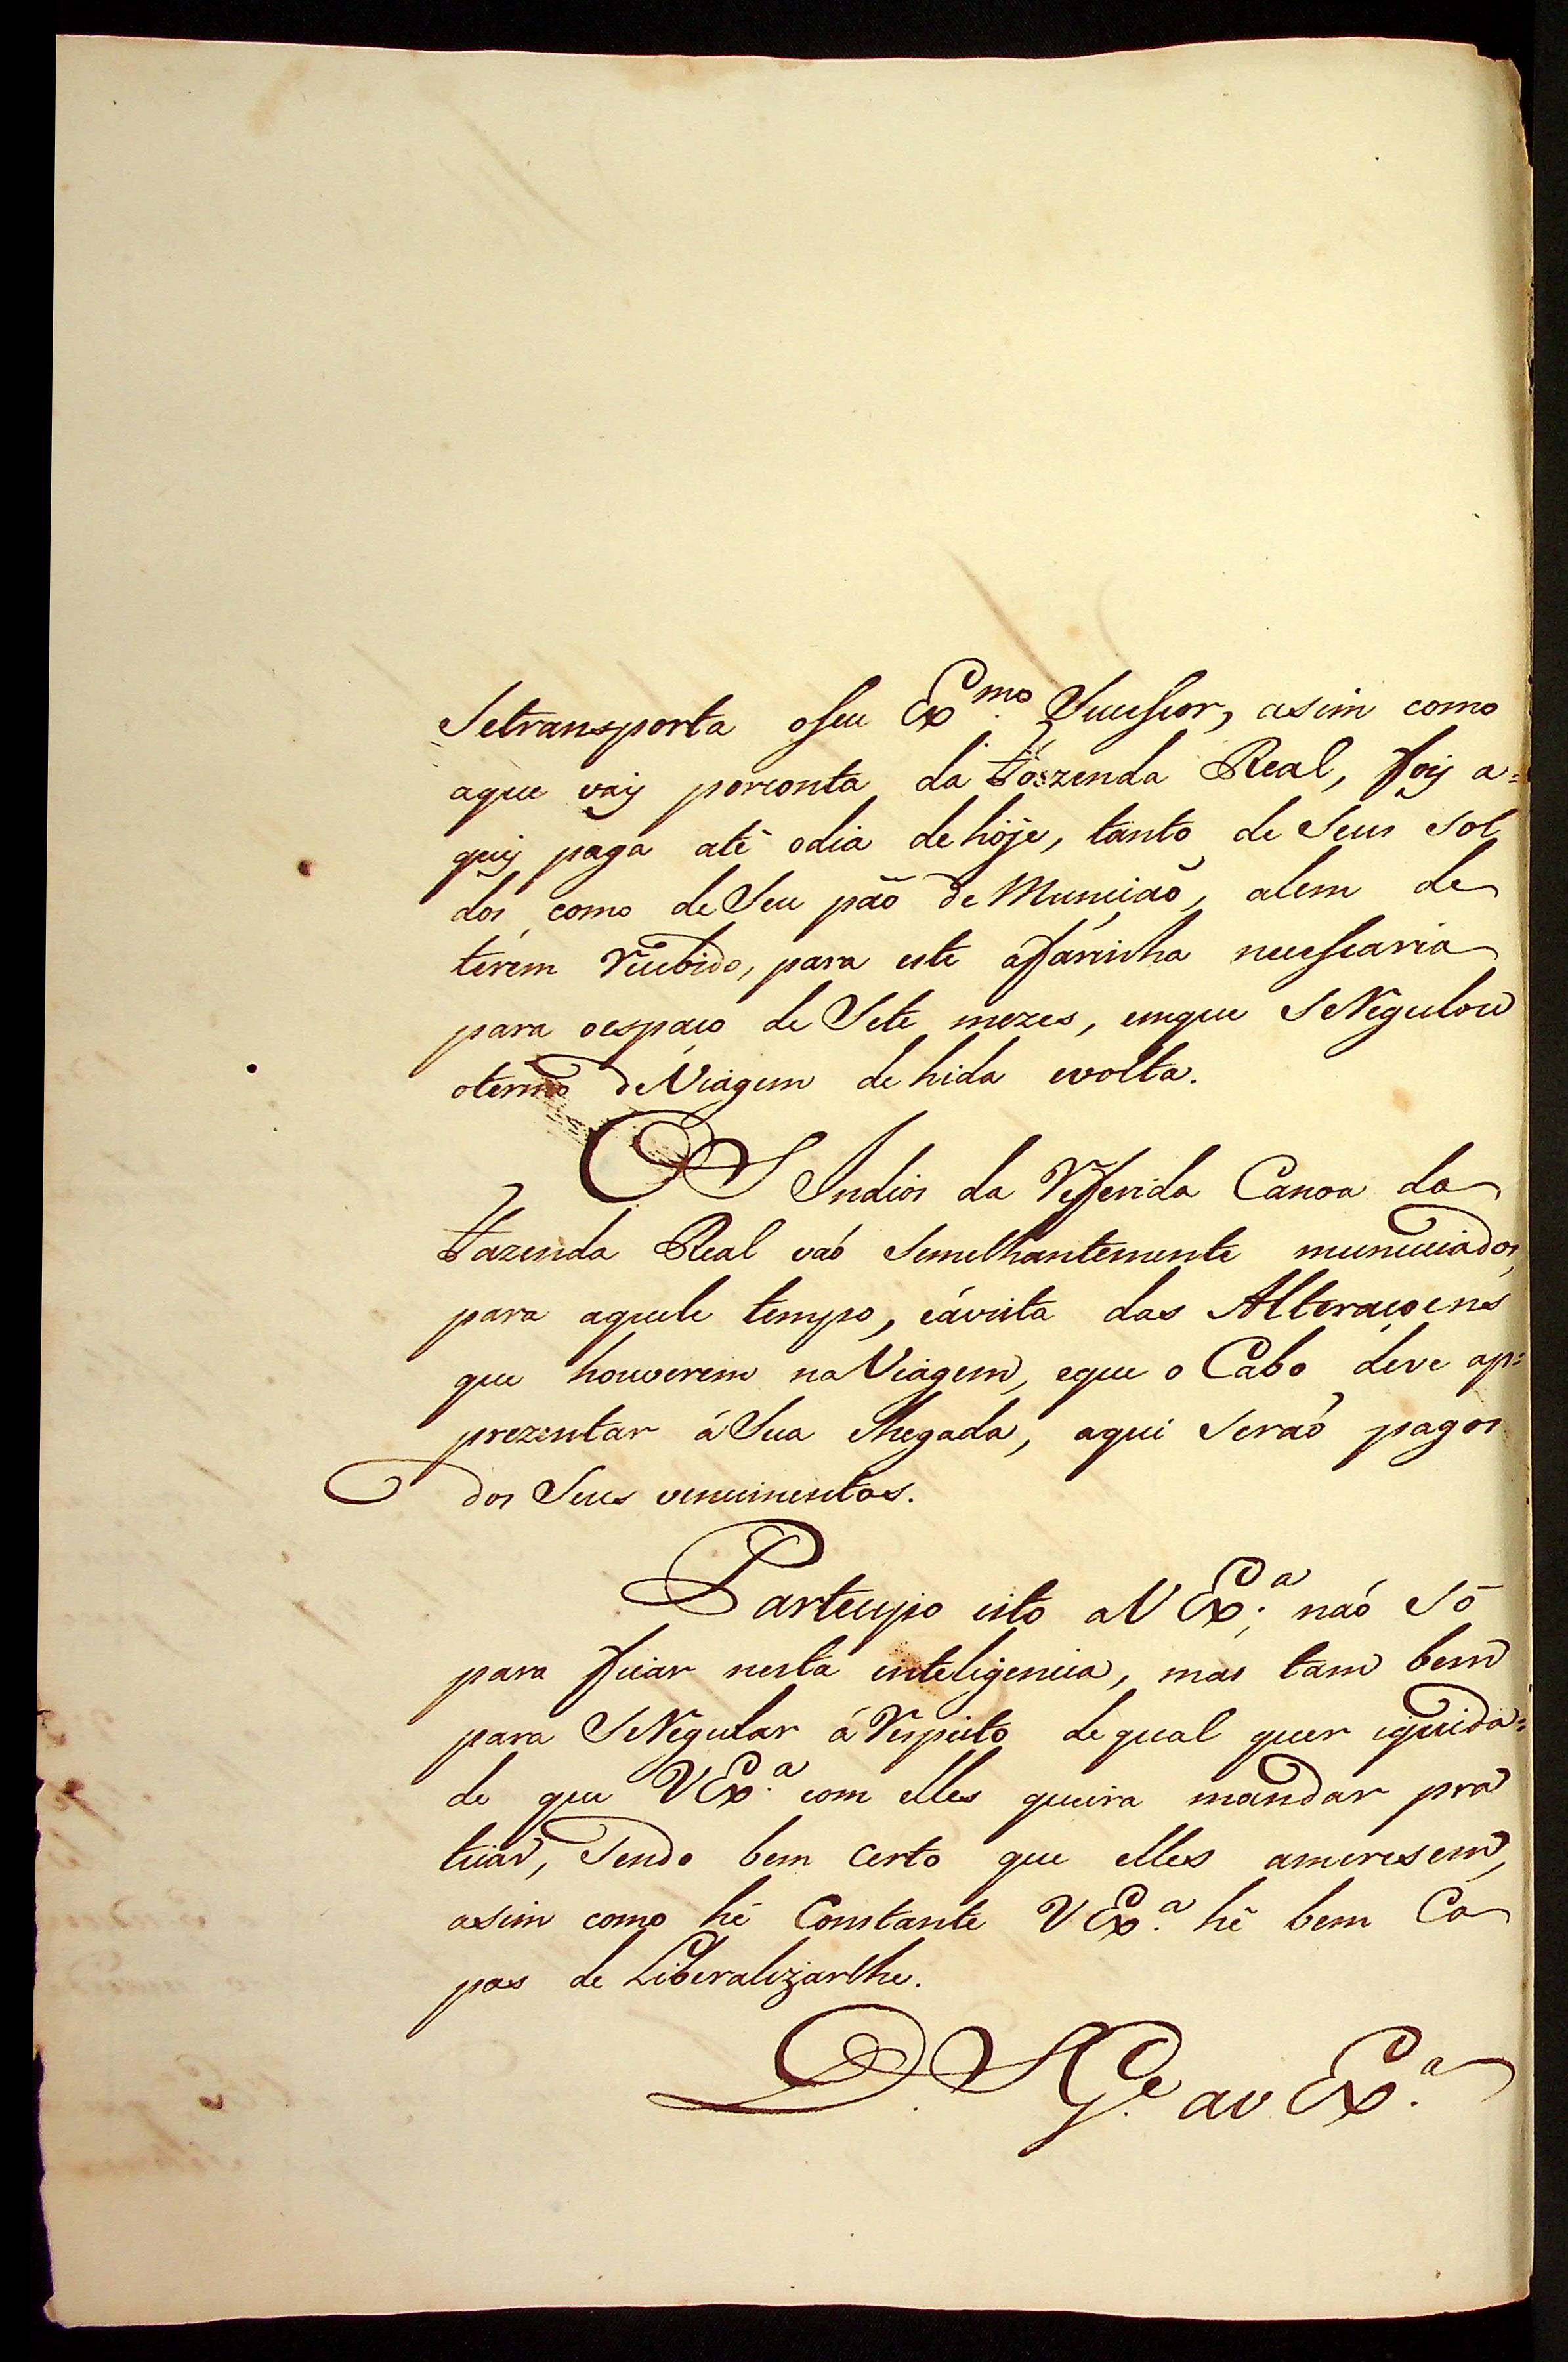 Setransporta oSeu Ex.mo Sucessor, asim como
aque vaÿ porconta da Fazenda Real, foÿ a=
quÿ paga atê odia dehoje, tanto de Seus Sol
dos como deSeu pão de Municiaõ, alem de
terem recebido, para este afarinha necessaria
para oespaço de Sete mezes, emque SeRegulou
otermo deViagem de hida evolta.
OS Indios da referida Canoa da
Fazenda Real vaõ Semelhantemente municiados,
para aquele tempo, eávista das Alteraçoens
que houverem naViagem, eque o Cabo deve ap=
prezentar áSua chegada, aqui Seraõ pagos
dos Seus vencimentos.
Partecipo isto aV Ex.a, naõ Só
para ficar nesta inteligencia, mas tam bem
para SeRegular áRespeito dequal quer equida=
de que V Ex.a com elles queira mandar pra
ticar, Sendo bem certo que elles ameresem,
asim como hé Constante V Ex.a hê bem Ca
pas de Liberalizarlhe.
D. S G.e aV Ex.a